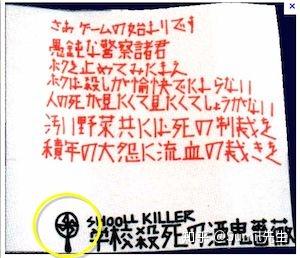 さあゲームの始まりです
愚鈍な警察諸君
ボクを止めてみたまえ
ボクは殺しが愉快でたまらない
人の死が見たくて見たくてしょうがない
汚い野菜共には死の制裁を
積年の大怨に流血の裁きを
SHOOLL KILLER
学校殺死の酒鬼薔薇
知乎 先生